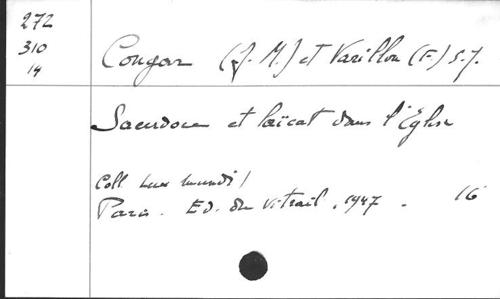 272
310
14
Congar (J. M.) et Varillon (F.) s.j.
Sacerdoce et laïcat dans l'Eglise
Coll. Lux mundi /
Paris. Ed. du Vitrail, 1947. 16